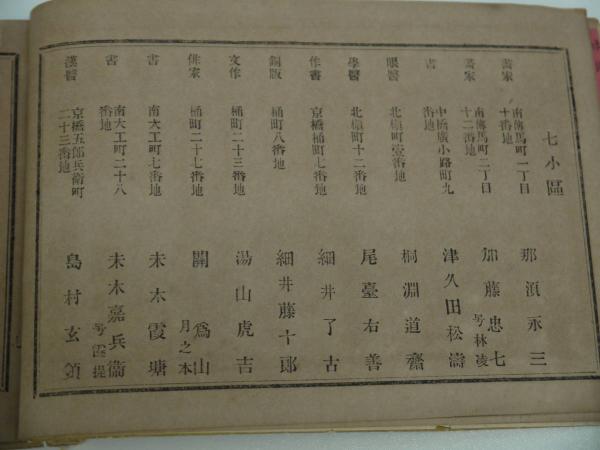 七小區
畫家 南傳馬町一丁目十番地 那須永三
畫家 南傳馬町二丁目十二番地 加藤忠七 号林凌
書 中橋廣小路町九番地 津久田松濤
眼醫 北槇町壹番地 桐淵道齋
學醫 北槇町十二番地 尾臺右善
作書 京橋桶町七番地 細井了古
銅版 桶町八番地 細井藤十郎
文作 桶町二十三番地 湯山虎吉
俳家 桶町二十七番地 關爲山 月之本
書 南大工町七番地 末木霞塘
書 南大工町二十八番地 末木嘉兵衞 号霞堤
漢醫 京橋五郎兵衞町二十三番地 島村玄